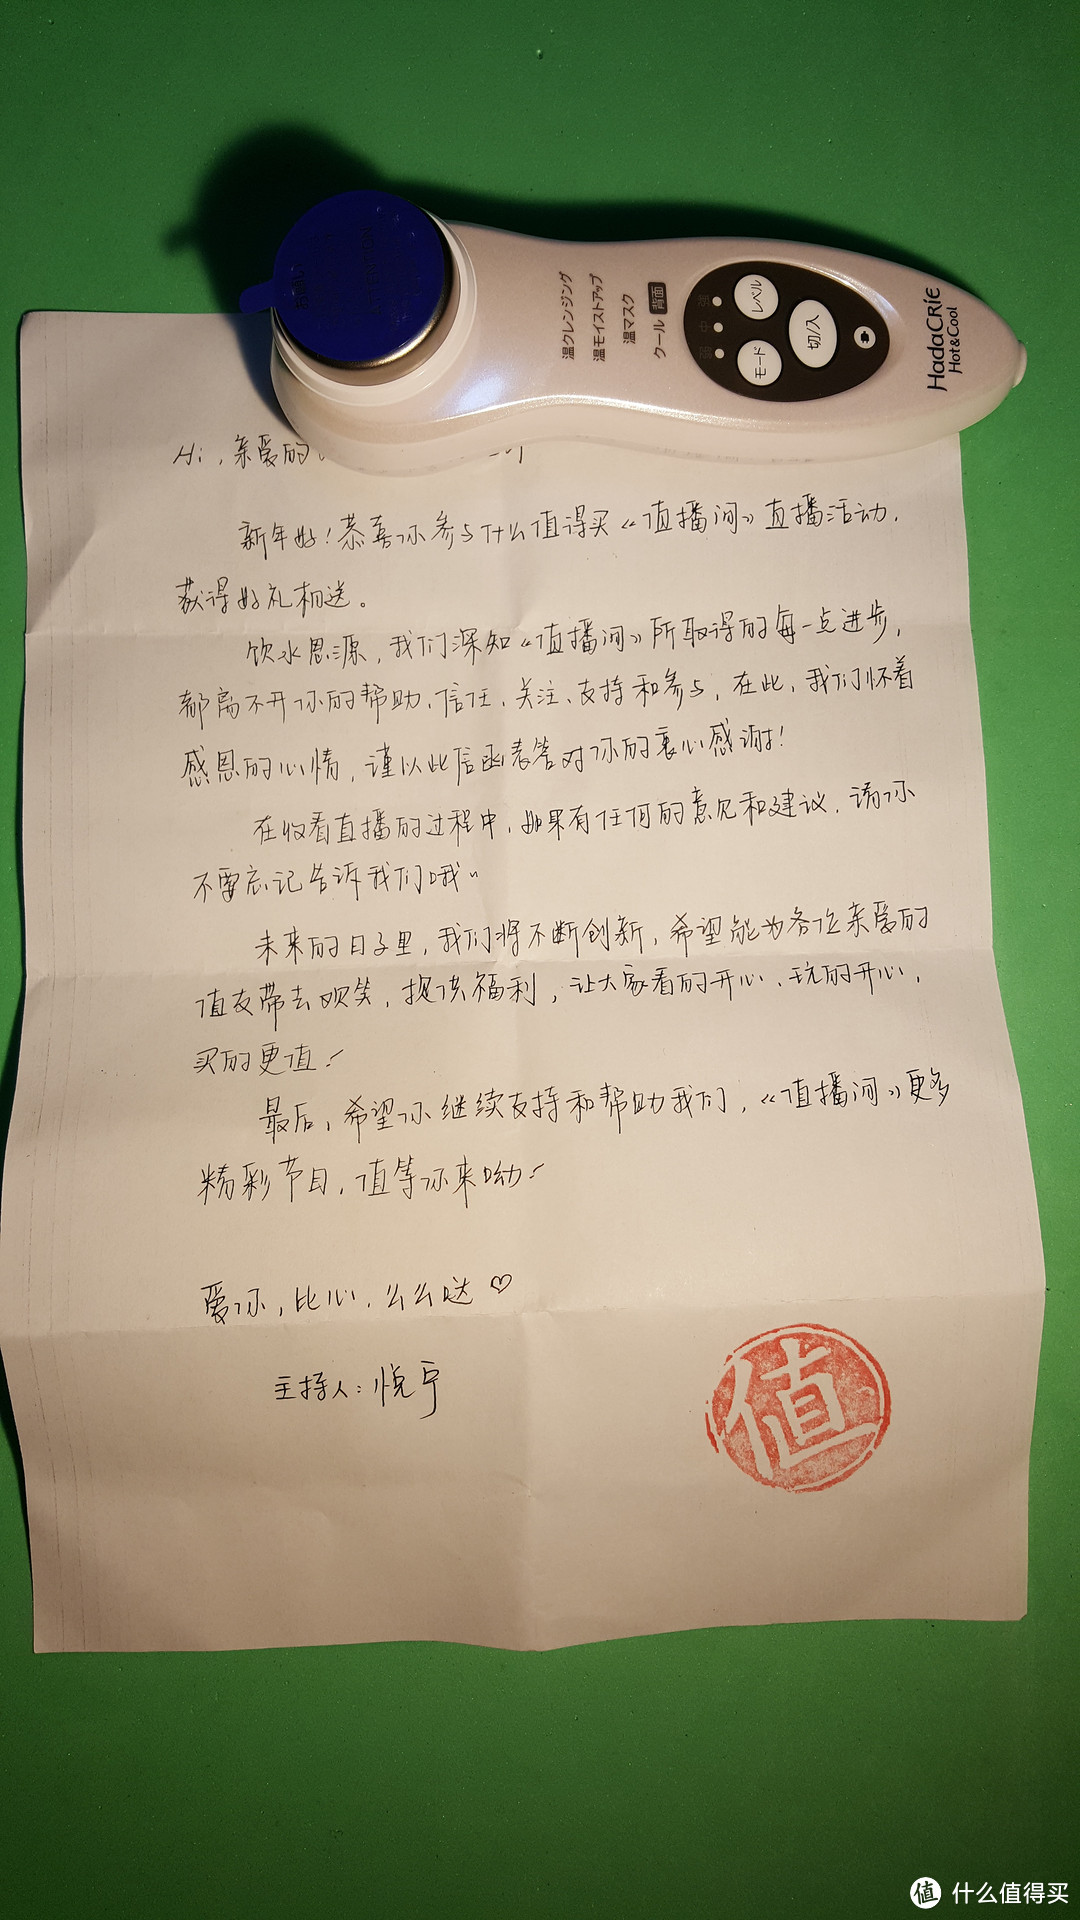 お願い
ATTENTION
温クレンジング
温モイストアップ
温マスク
クール 背面
強 中 弱
レベル
モード
切/入
HadaCRiE
Hot&Cool
Hi，亲爱的
新年好！恭喜你参与什么值得买《值播间》直播活动，
获得好礼相送。
饮水思源，我们深知《值播间》所取得的每一点进步，
都离不开你的帮助、信任、关注、支持和参与，在此，我们怀着
感恩的心情，谨以此信函表答对你的衷心感谢！
在收看直播的过程中，如果有任何的意见和建议，请你
不要忘记告诉我们哦~
未来的日子里，我们将不断创新，希望能为各位亲爱的
值友带去欢笑，提供福利，让大家看的开心、玩的开心，
买的更值！
最后，希望你继续支持和帮助我们，《值播间》更多
精彩节目，值等你来呦！
爱你，比心，么么哒♡
主持人：悦宁
值
值 什么值得买